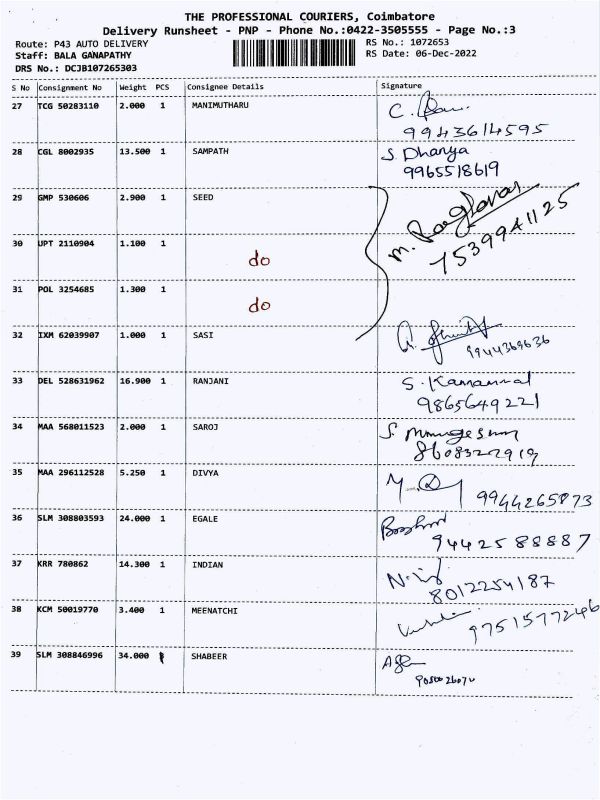 THE PROFESSIONAL COURIERS, Coimbatore
Delivery Runsheet - PNP - Phone No.:0422-3505555 - Page No.:3
Route: P43 AUTO DELIVERY
RS No.: 1072653
Staff: BALA GANAPATHY
RS Date: 06-Dec-2022
DRS No.: DCJB107265303
S No Consignment No Weight PCS Consignee Details Signature
27 TCG 50283110 2.000 1 MANIMUTHARU
9943614595
28 CGL 8002935 13.500 1 SAMPATH S. Dhanya
9965518619
29 GMP 530606 2.900 1 SEED M. Raghavan
7539941125
30 UPT 2110904 1.100 1
do
31 POL 3254685 1.300 1
do
32 IXM 62039907 1.000 1 SASI
9944369636
33 DEL 528631962 16.900 1 RANJANI S. Kamammal
9865649221
34 MAA 568011523 2.000 1 SAROJ
8608327919
35 MAA 296112528 5.250 1 DIVYA
9944265873
36 SLM 308803593 24.000 1 EGALE
9442588887
37 KRR 780862 14.300 1 INDIAN
8012254187
38 KCM 50019770 3.400 1 MEENATCHI
9751577246
39 SLM 308846996 34.000 SHABEER